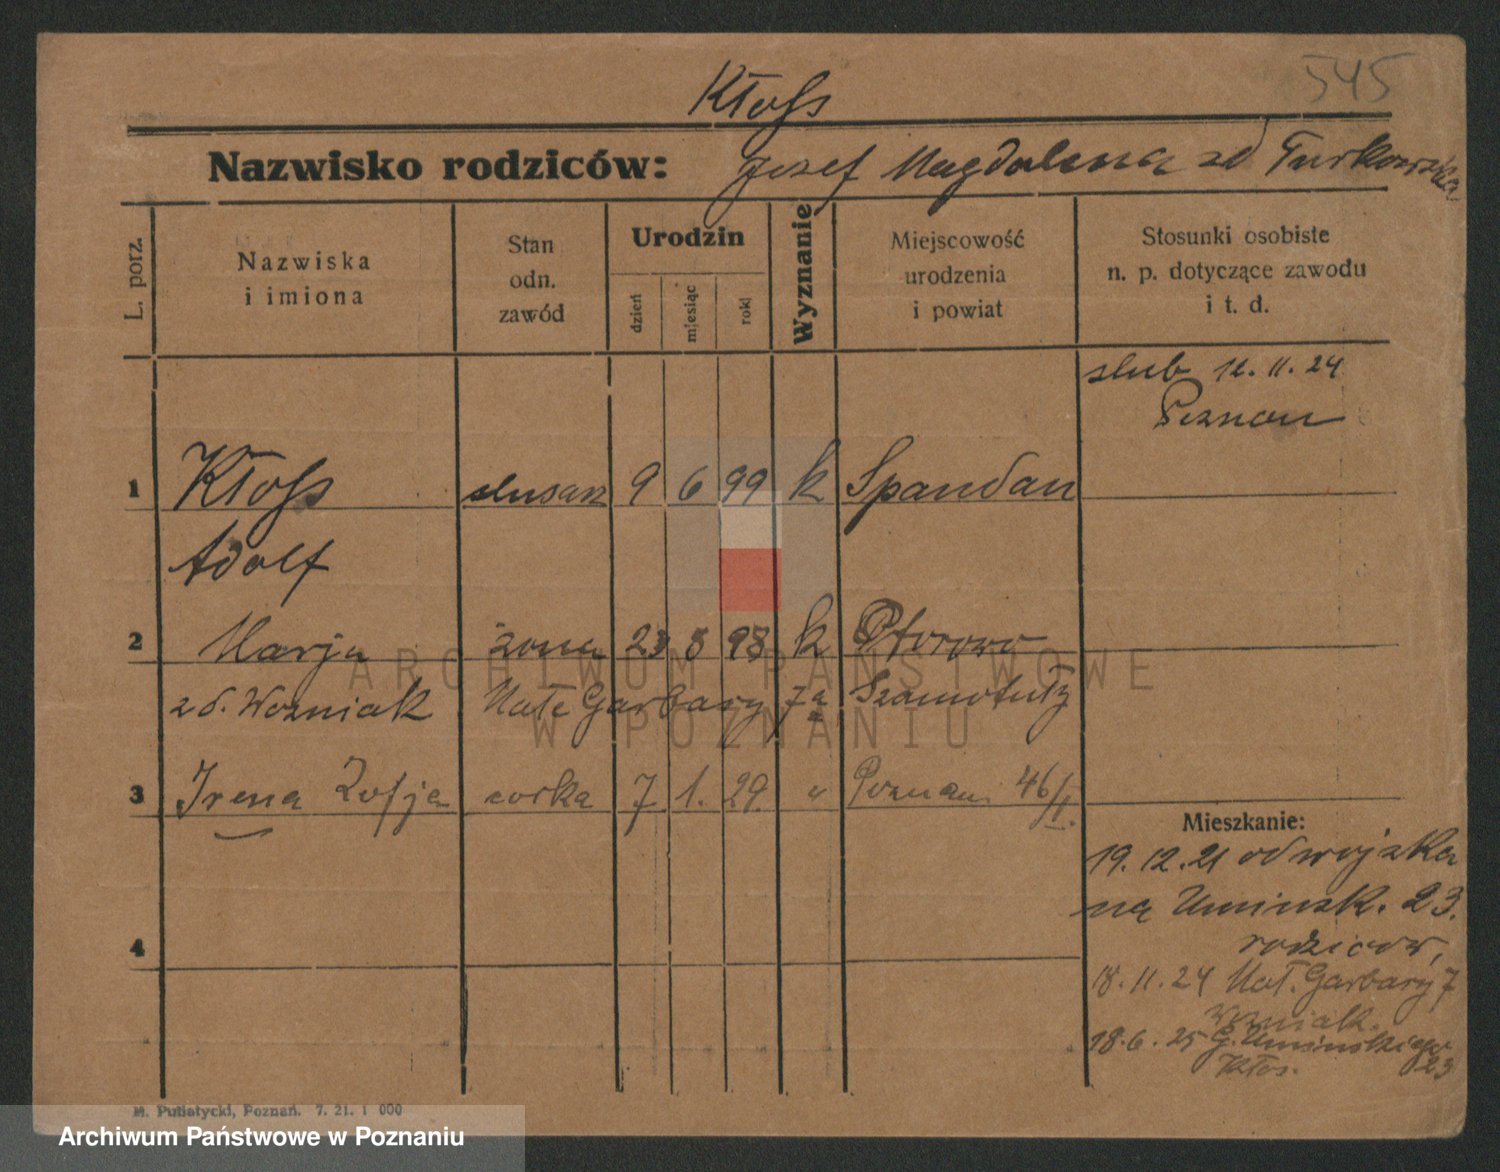 545
Kłoss
Nazwisko rodziców: Jozef Magdalena zd Turkowska
L. porz.
Nazwiska
i imiona
Stan
odn.
zawód
Urodzin
dzień
miesiąc
rok
Wyznanie
Miejscowość
urodzenia
i powiat
Stosunki osobiste
n. p. dotyczące zawodu
i t. d.
slub 12. 11. 24
Poznan
1 Kłoss slusarz 9 6 99 k Spandau
Adolf
2 Marja żona 23 8 98 k Otorowo
zd. Wozniak Małe Garbary 7a Szamotuły
3 Irena Zofja corka 7 1. 29. " Poznan 46/I.
4
Mieszkanie:
19. 12. 21 od wojska
na Uminsk. 23.
rodzicow,
18. 11. 24 Mał. Garbary 7
Wozniak.
18. 6. 25 G. Uminskiego
23
Kłos.
ARCHIWUM PAŃSTWOWE
W POZNANIU
M. Putiatycki, Poznań. 7. 21. 1 000
Archiwum Państwowe w Poznaniu